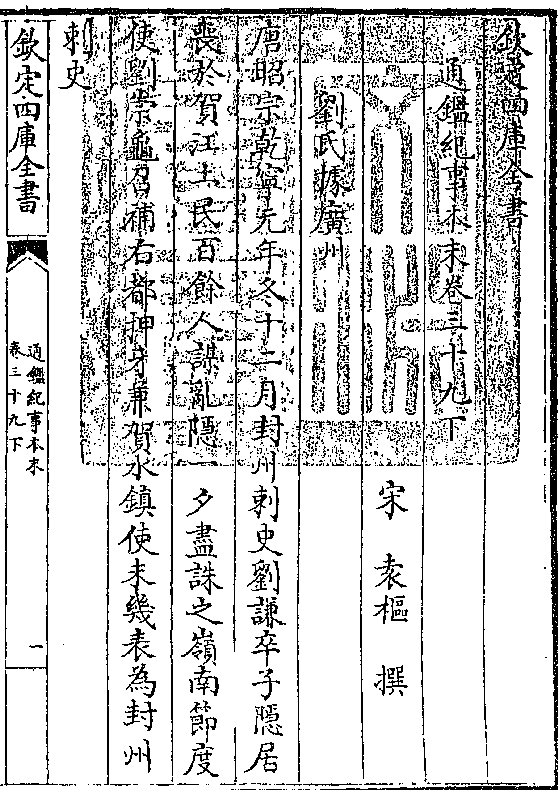 欽定四庫全書
通鑑紀事本末卷三十九下
宋 袁樞 撰
劉氏據廣州
唐昭宗乾寧元年冬十二月封州刺史劉謙卒子隱居
喪於賀江土民百餘人謀亂隱一夕盡誅之嶺南節度
使劉崇龜召補右都押牙兼賀水鎮使未幾表為封州
刺史
欽定四庫全書
通鑑紀事本末
卷三十九下
一